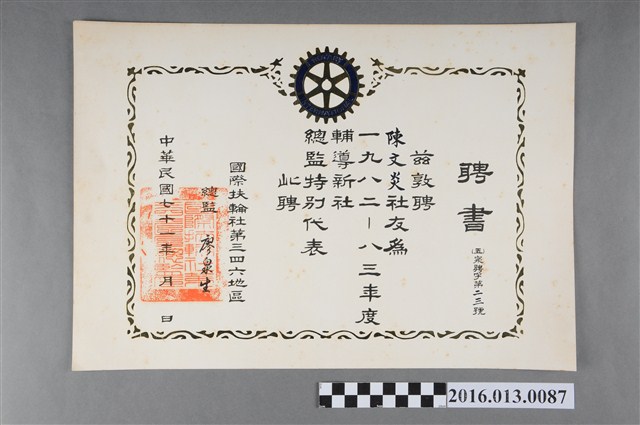 聘書
茲敦聘
陳文炎社友為
一九八二－八三年度
輔導新社
總監特別代表
此聘
國際扶輪社第三四六地區
總監 廖泉生
中華民國七十一年 月 日
2016.013.0087